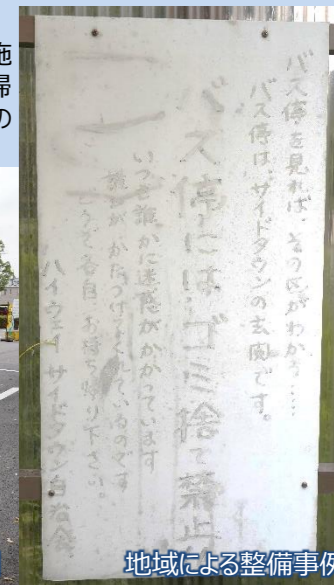 施
帰
の
バス停を見れば、その民がわかる……
バス停は、サイドタウンの玄関です。
バス停にはゴミ捨て禁止
いつも誰かに迷惑がかかっています
誰かがかたづけてくれているのです
どうぞ各自、お持ち帰り下さい。
ハイウェイ サイドタウン自治会
地域による整備事例